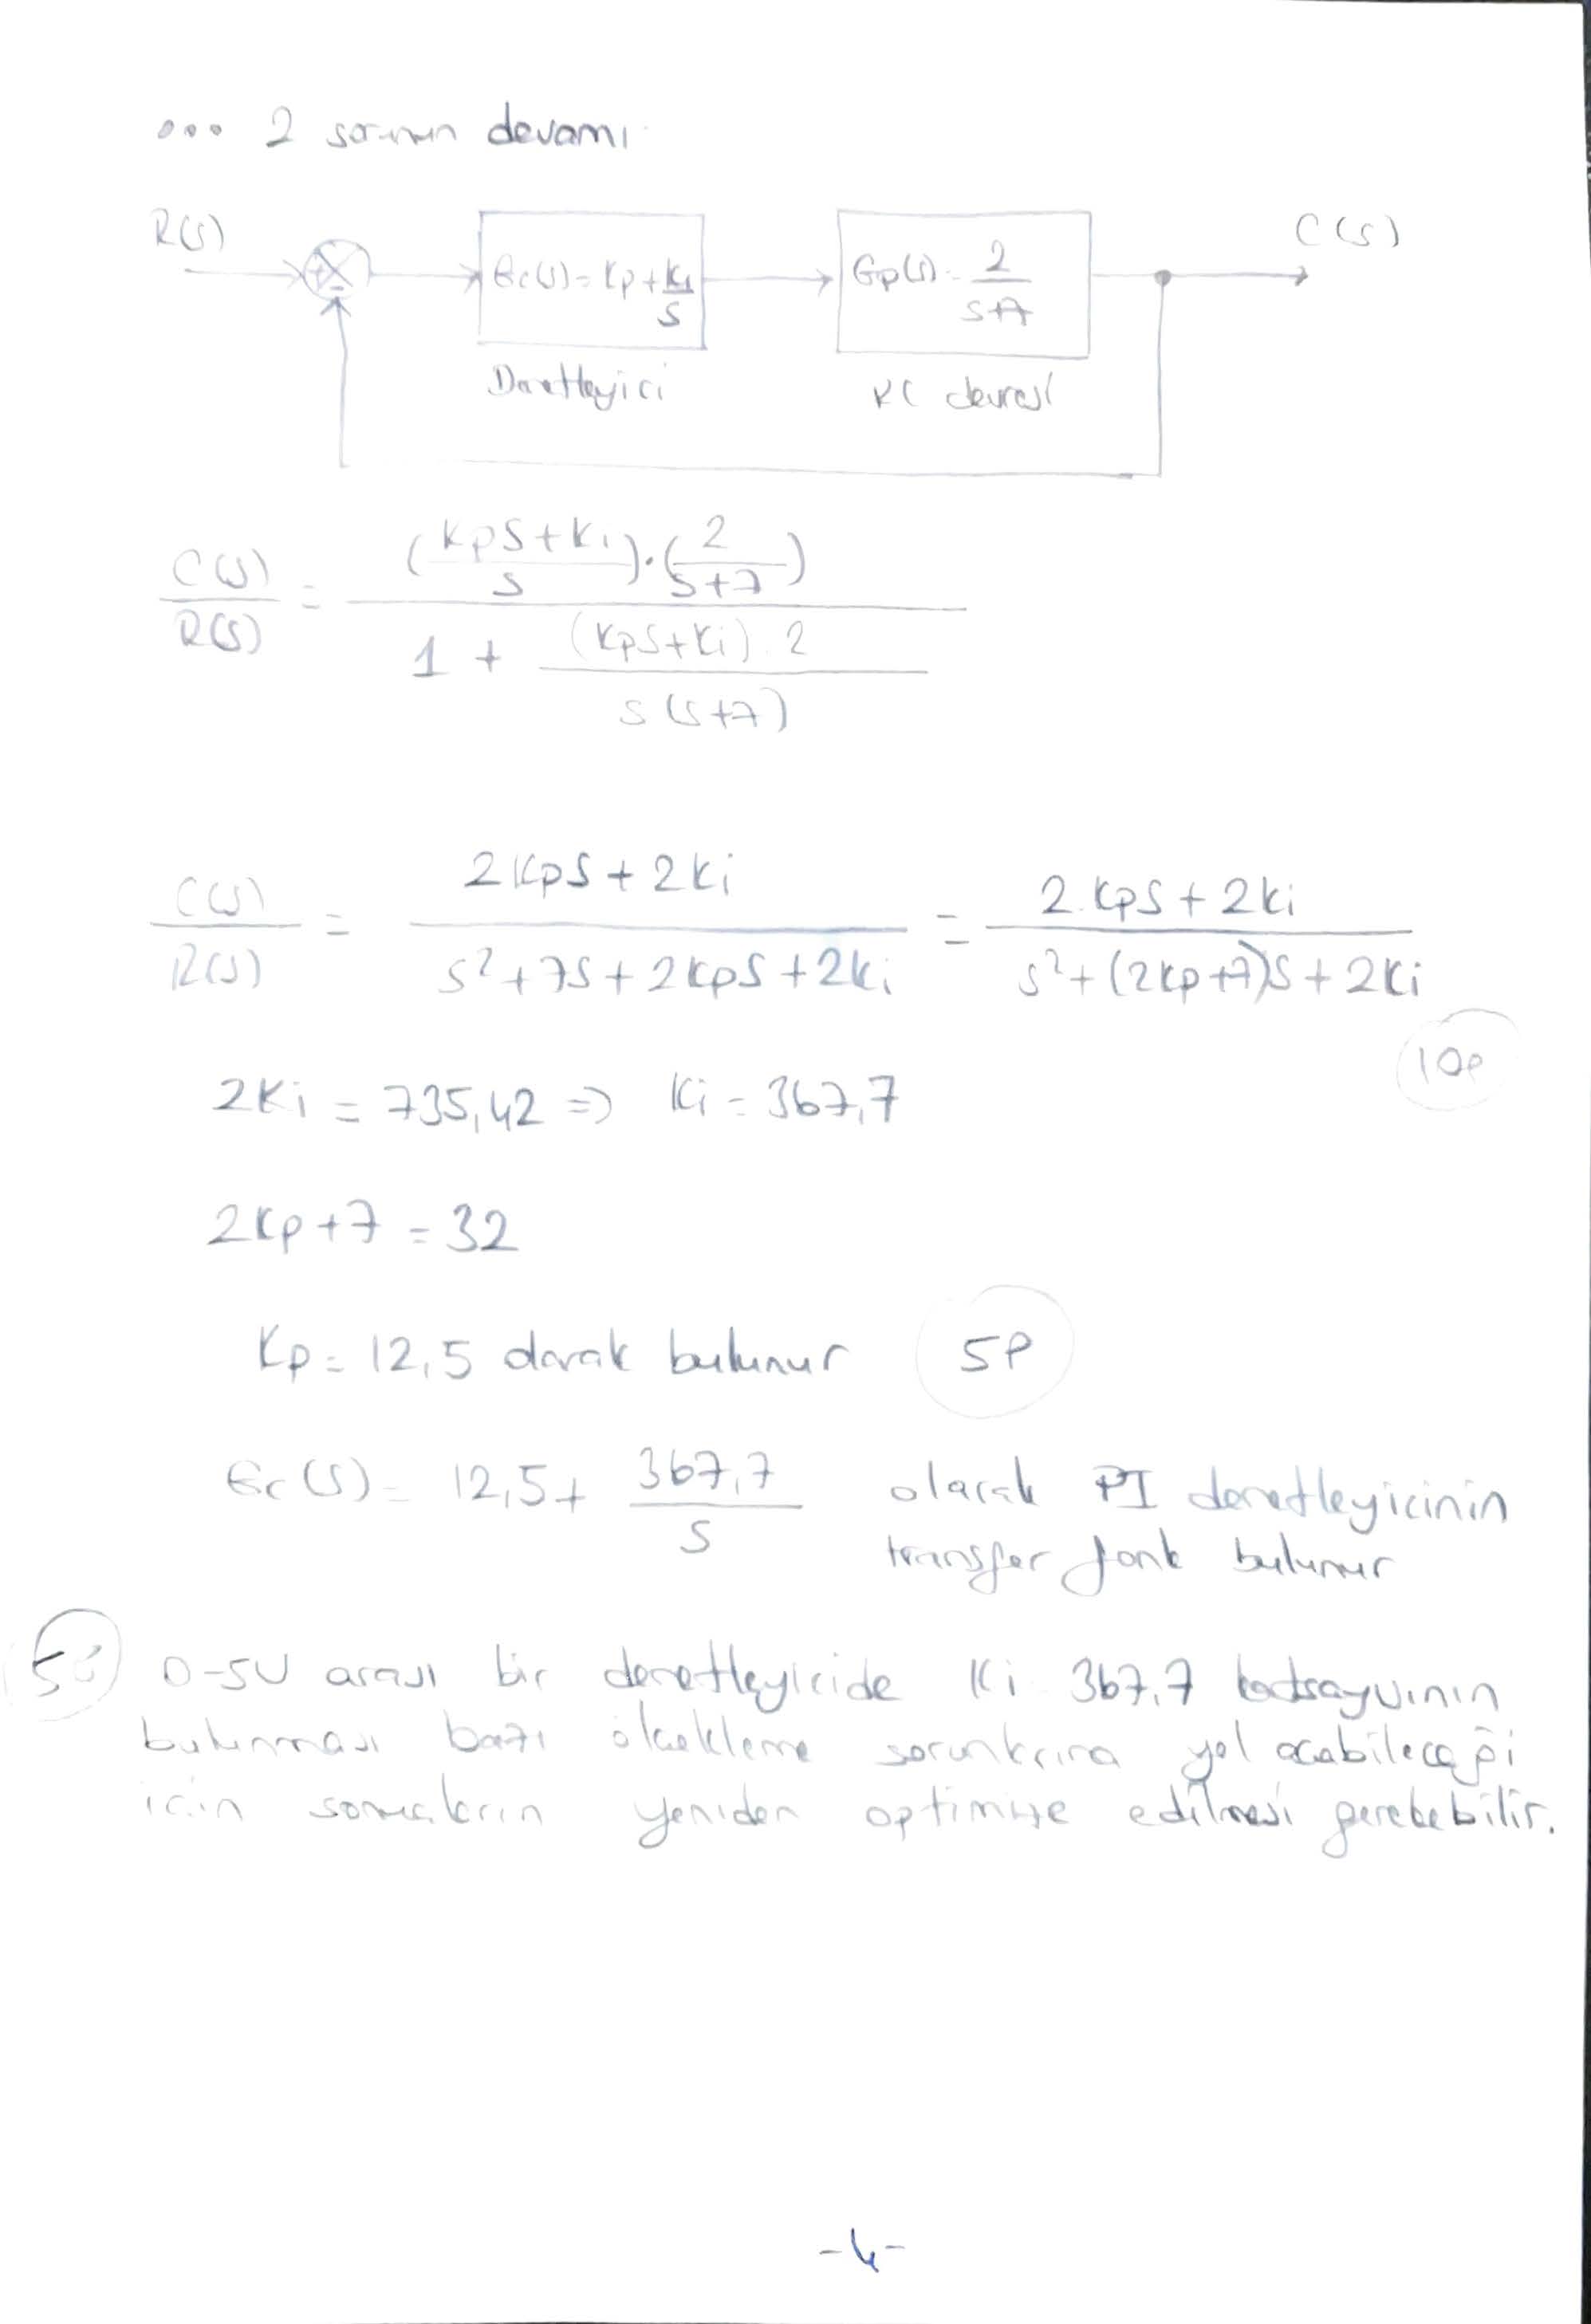 ... 2 sorunun devamı
R(s) C(s)
+ -
Gc(s) = Kp + Ki/s
Gp(s) = 2/(s+7)
Denetleyici RC devresi
C(s)/R(s) = ((KpS+Ki)/s).(2/(s+7)) / (1 + (KpS+Ki).2/(s(s+7)))
C(s)/R(s) = (2KpS+2Ki)/(s²+7s+2KpS+2Ki) = (2.KpS+2Ki)/(s²+(2Kp+7)s+2Ki)
10P
2Ki = 735,42 => Ki = 367,7
2Kp+7 = 32
Kp = 12,5 olarak bulunur 5P
Gc(s) = 12,5 + 367,7/s olacak PI denetleyicinin
transfer fonk bulunur
0-5V arası bir denetleyicide Ki 367,7 katsayısının
bulunması bazı ölçekleme sorunlarına yol açabileceği
için sonuçların yeniden optimize edilmesi gerekebilir.
-4-